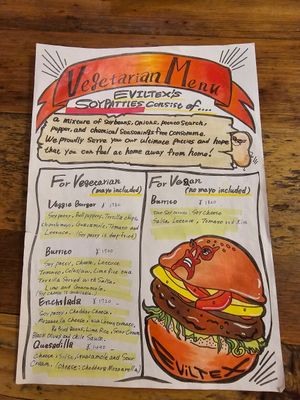 Vegetarian Menu
EVILTEX'S
SOYPATTIES CONSIST OF....
a mixture of soybeans, onions, potato starch,
pepper, and chemical seasonings free consomme.
We proudly serve you our ultimate patties and hope
that you can feel at home away from home!
For Vegetarian
(mayo included)
Veggie Burger ¥
Soy patty, Bell peppers, Tortilla chips,
Guacamole, Tomato and
Lettuce. (Soy patty is deep-fried)
Burrito
Soy patty, Cheese, Lettuce
Tomatoes, Coleslaw, Lime Rice and
Tortilla Served with Salsa,
Lime and Guacamole.
(Soy cheese is available)
Enchilada ¥1720
Soy patty, Cheddar Cheese,
Mozzarella Cheese,
Refried Beans, Lime Rice, Sour Cream
Black Olives and Chile Sauce.
Quesadilla
Cheese, Salsa, Guacamole and Sour
Cream. (Cheese: Cheddar & Mozzarella)
For Vegan
(no mayo included)
Burrito
Soy Cheese
Salsa, Lettuce, Tomato and
EVILTEX